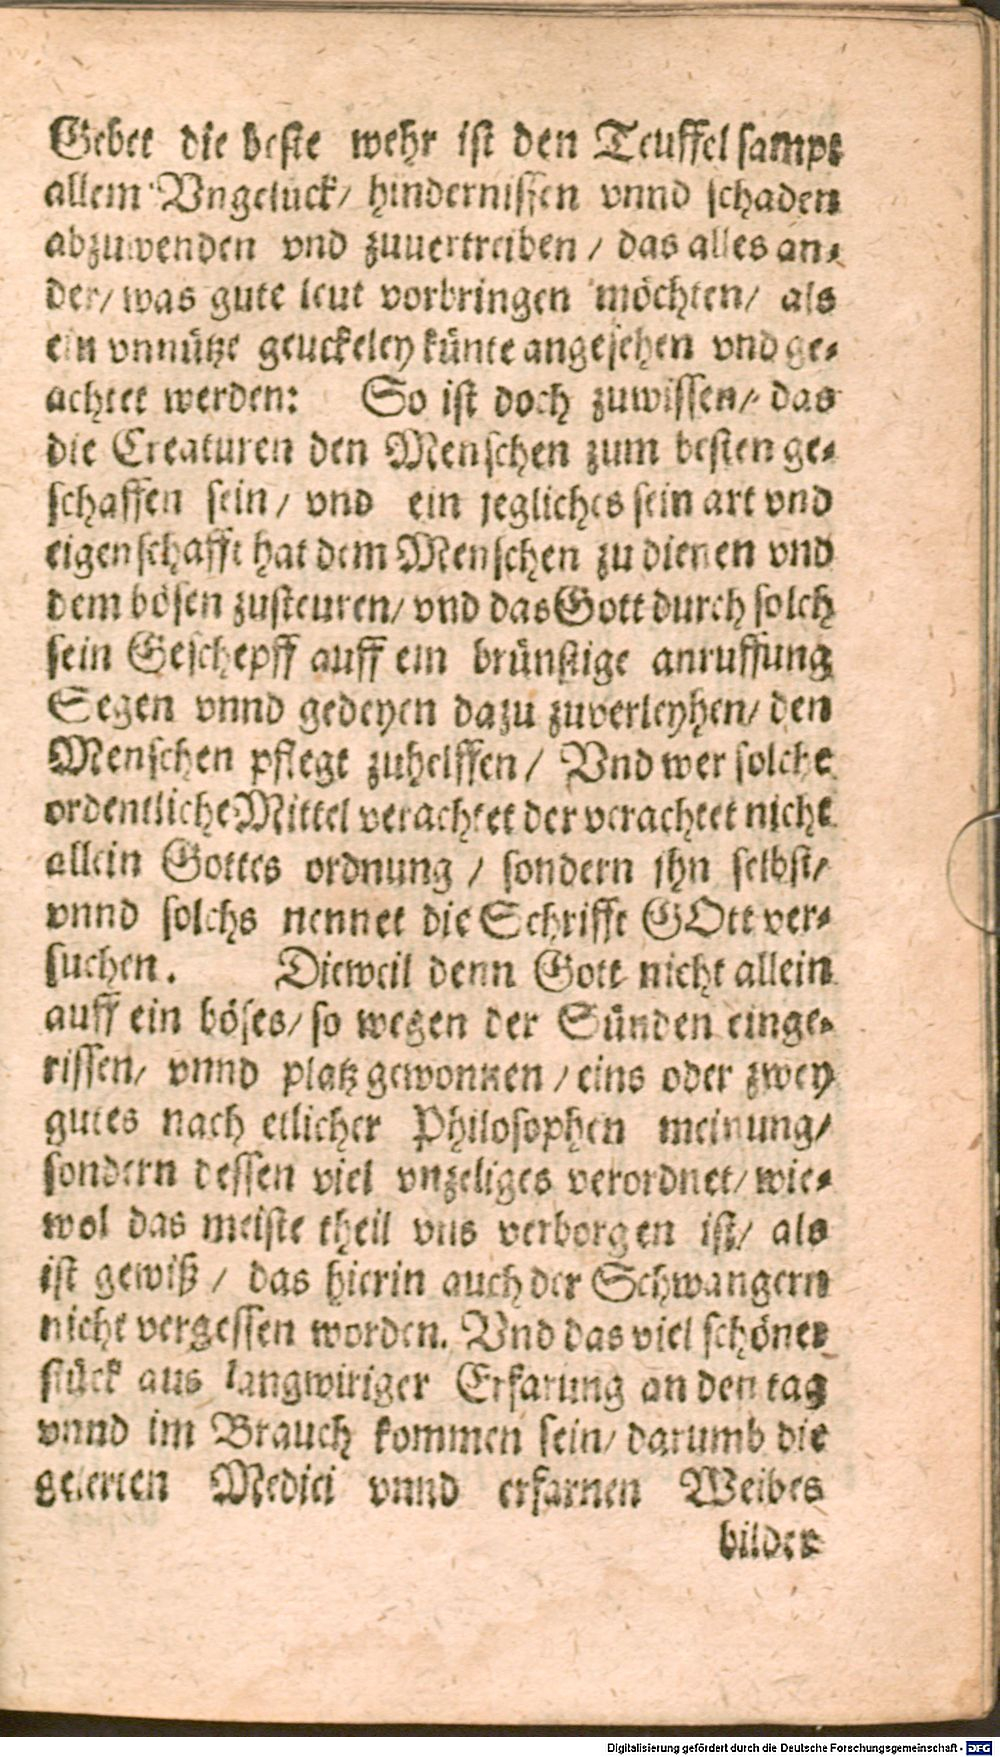 Gebet die beste wehr ist den Teuffel sampt
allem Vngelück/ hindernissen vnnd schaden
abzuwenden vnd zuuertreiben / das alles an-
der/ was gute leut vorbringen möchten/ als
ein vnnütze geuckeley künte angesehen vnd ge-
achtet werden: So ist doch zuwissen/ das
die Creaturen den Menschen zum besten ge-
schaffen sein / vnd ein jegliches sein art vnd
eigenschafft hat dem Menschen zu dienen vnd
dem bösen zusteuren/ vnd das Gott durch solch
sein Geschepff auff ein brünstige anruffung
Segen vnnd gedeyen dazu zuverleyhen/ den
Menschen pflegt zuhelffen / Vnd wer solche
ordentliche Mittel verachtet der verachtet nicht
allein Gottes ordnung / sondern jhn selbst/
vnnd solchs nennet die Schrifft GOtt ver-
suchen. Dieweil denn Gott nicht allein
auff ein böses/ so wegen der Sünden einge-
rissen/ vnnd platz gewonnen / eins oder zwey
gutes nach etlicher Philosophen meinung/
sondern dessen viel vnzeliges verordnet/ wie-
wol das meiste theil vns verborgen ist/ als
ist gewiß / das hierin auch der Schwangern
nicht vergessen worden. Vnd das viel schöner
stück aus langwiriger Erfarung an den tag
vnnd im Brauch kommen sein/ darumb die
gelerten Medici vnnd erfarnen Weibes
bilder
Digitalisierung gefördert durch die Deutsche Forschungsgemeinschaft - DFG